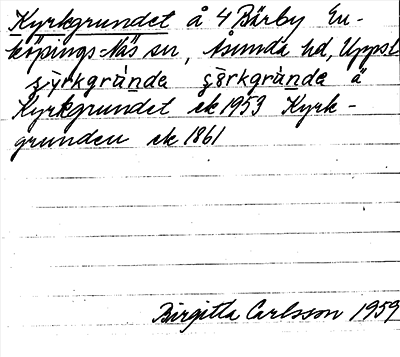 Kyrkgrundet å 4 Bärby En-
köpings-Näs sn, Åsunda hd, Uppsl
çÿrkgrùnda çörkgrùnda ä
Kyrkgrundet ek 1953 Kyrk-
grunden ek 1861
Birgitta Carlsson 1959